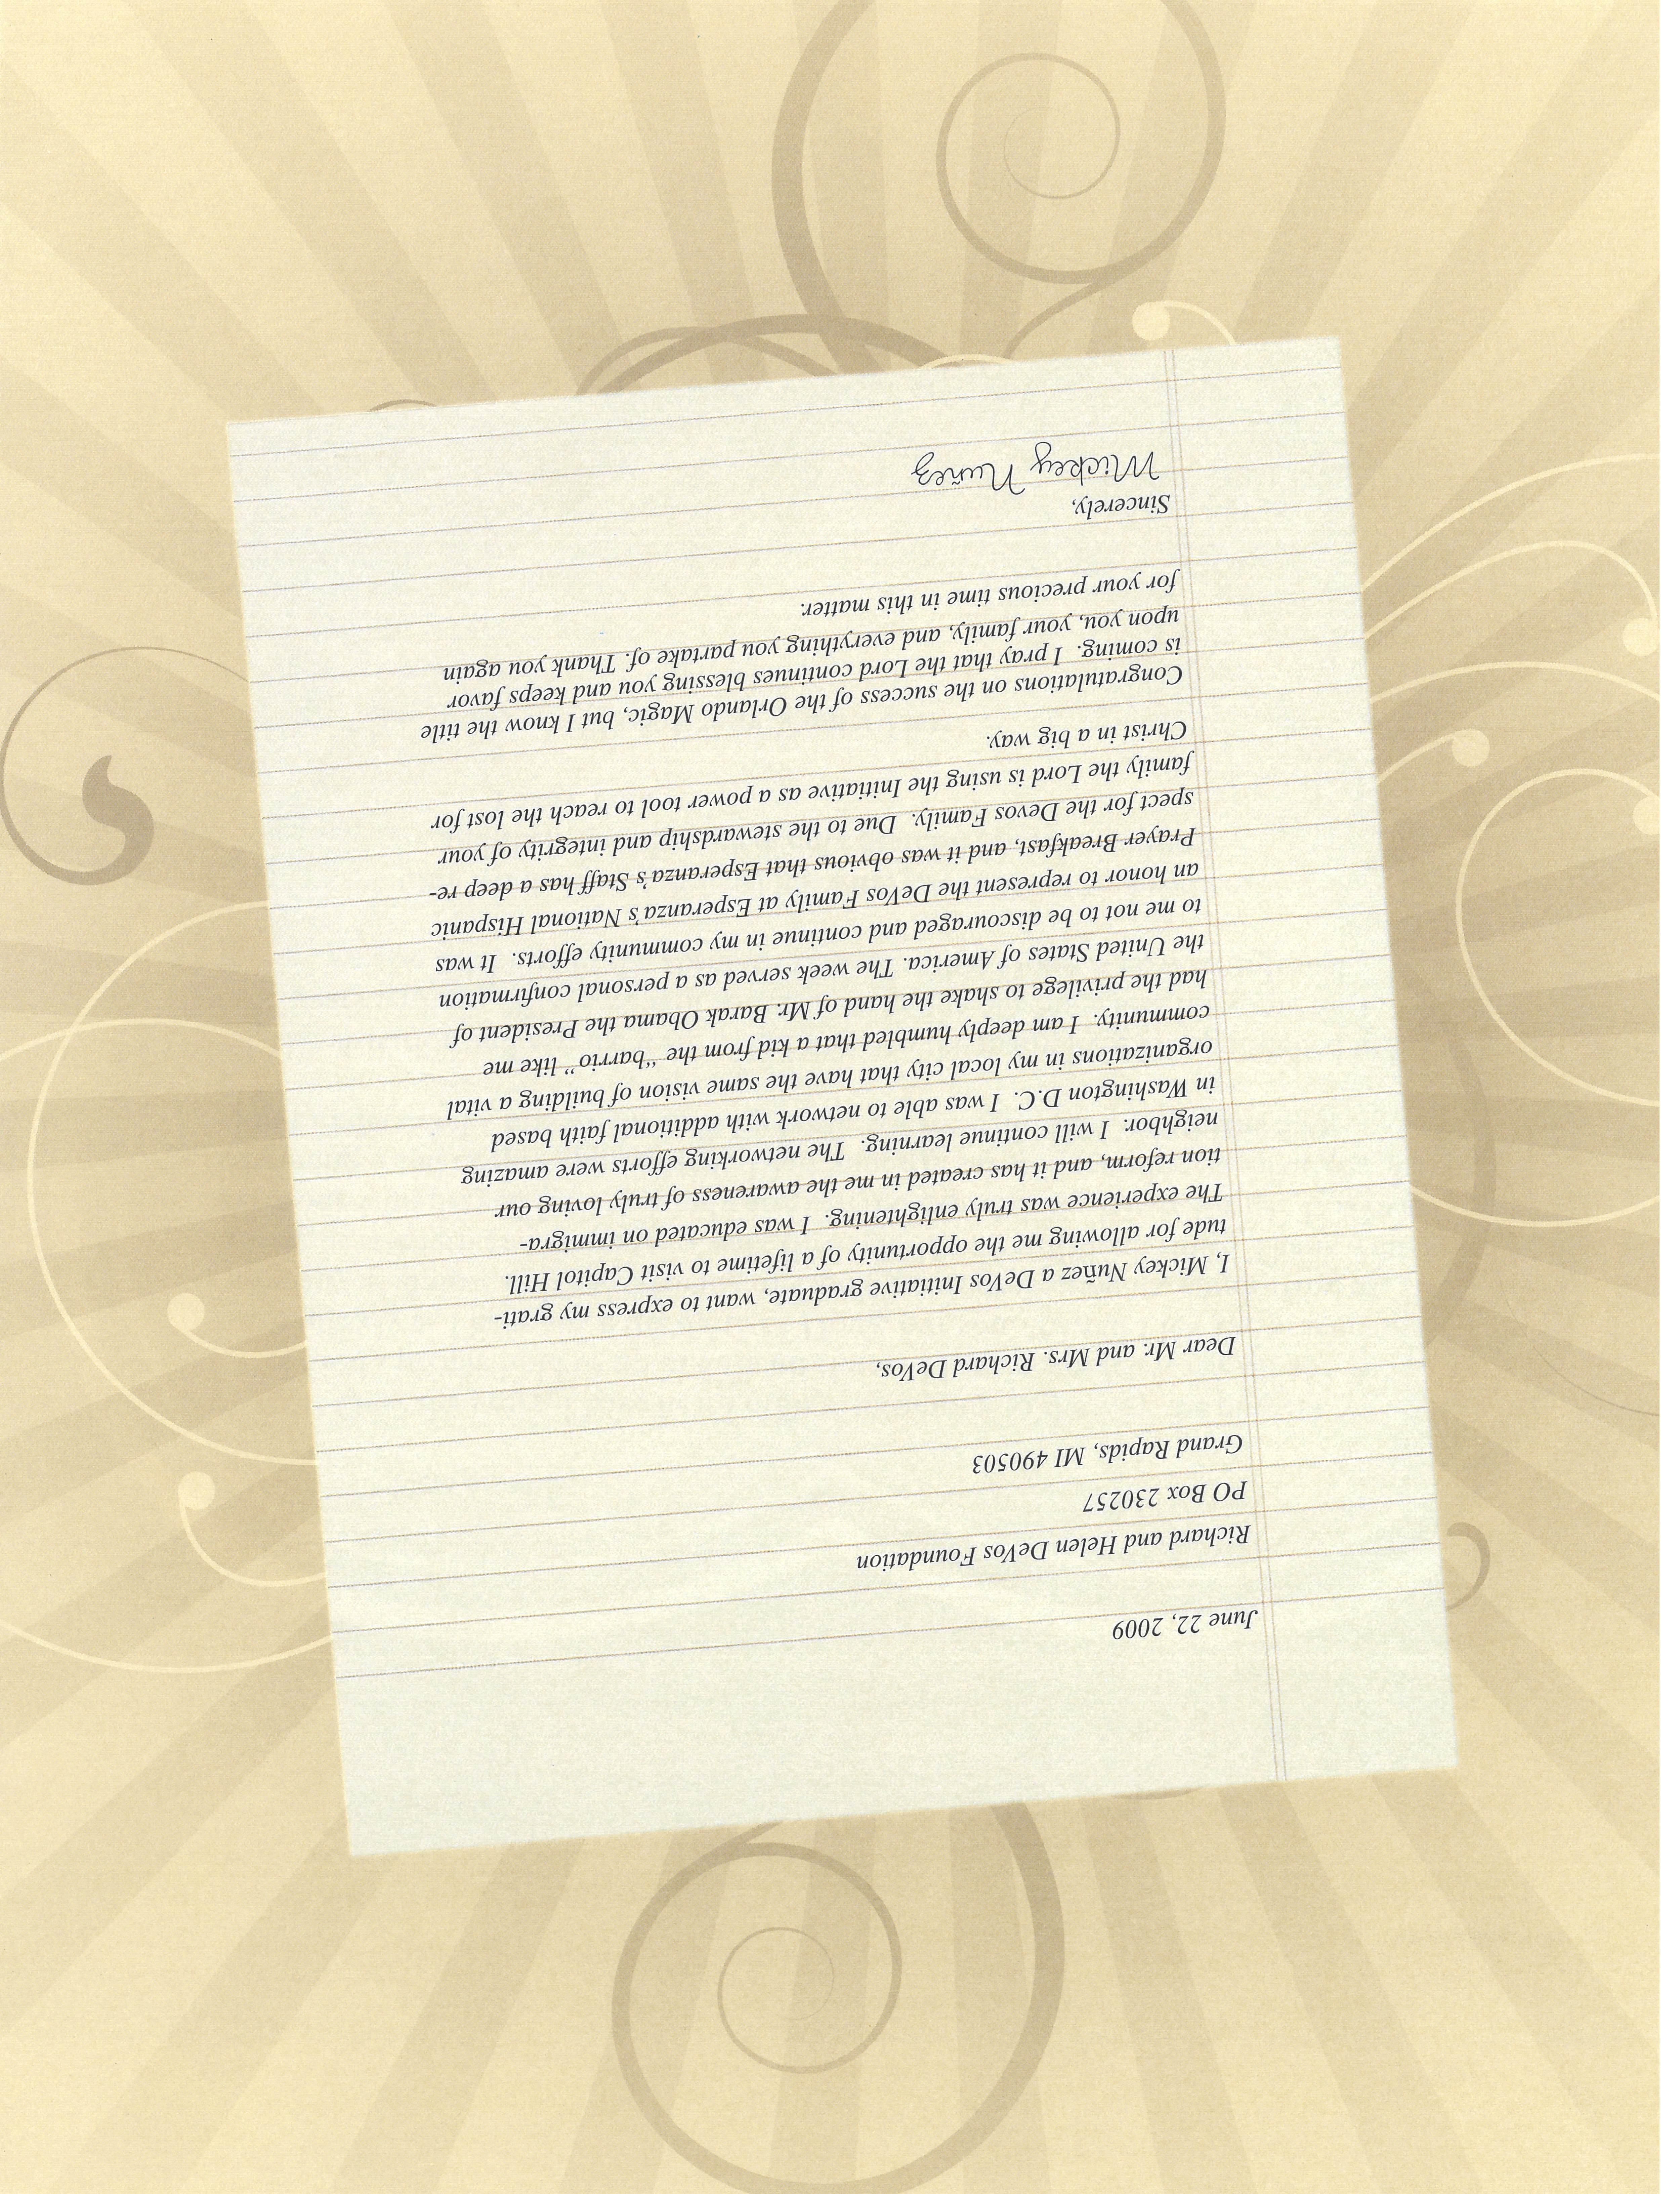 June 22, 2009
Richard and Helen DeVos Foundation
PO Box 230257
Grand Rapids, MI 490503
Dear Mr. and Mrs. Richard DeVos,
I, Mickey Nuñez a DeVos Initiative graduate, want to express my grati-
tude for allowing me the opportunity of a lifetime to visit Capitol Hill.
The experience was truly enlightening.  I was educated on immigra-
tion reform, and it has created in me the awareness of truly loving our
neighbor.  I will continue learning.  The networking efforts were amazing
in Washington D.C.  I was able to network with additional faith based
organizations in my local city that have the same vision of building a vital
community.  I am deeply humbled that a kid from the “barrio” like me
had the privilege to shake the hand of Mr. Barak Obama the President of
the United States of America. The week served as a personal confirmation
to me not to be discouraged and continue in my community efforts.  It was
an honor to represent the DeVos Family at Esperanza’s National Hispanic
Prayer Breakfast, and it was obvious that Esperanza’s Staff has a deep re-
spect for the Devos Family.  Due to the stewardship and integrity of your
family the Lord is using the Initiative as a power tool to reach the lost for
Christ in a big way.
Congratulations on the success of the Orlando Magic, but I know the title
is coming.  I pray that the Lord continues blessing you and keeps favor
upon you, your family, and everything you partake of. Thank you again
for your precious time in this matter.
Sincerely,
Mickey Nuñez